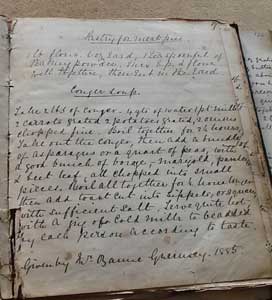 Pastry for meat pie
1 lb flour, 6oz Lard, 1 teaspoonful of
Baking powder, Mix up flour
well together, then cut in the Lard
Conger Soup.
Take 2 lbs of Conger, 4 qts of water, 1 pt milk
2 carrots grated 2 potatoes grated, 2 onions
chopped fine. Boil together for 2½ hours
Take out the Conger, then add a bundle
of asparagus or a quart of peas, with
a good bunch of borage, marigold, parsley
& beet leaf, all chopped into small
pieces. Boil all together for ½ hour longer
then add toast cut into sippets, or squares
with sufficient salt. Serve quite hot,
with a jug of cold milk to be added
by each person according to taste
Given by Mrs Guernsey. 1885